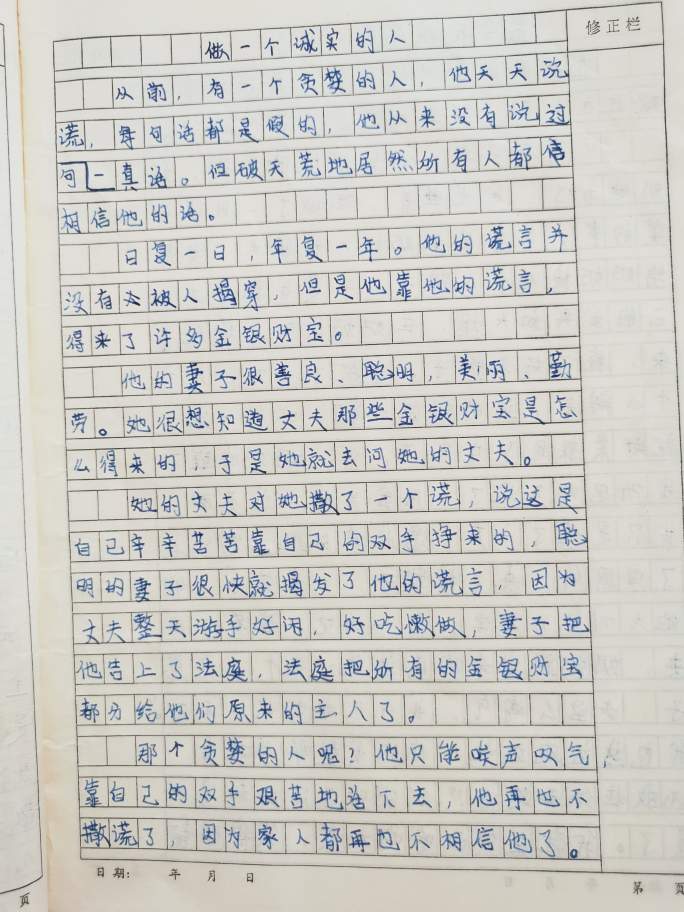 修正栏
做一个诚实的人
从前，有一个贪婪的人，他天天说
谎，每句话都是假的，他从来没有说过
句一真话。但破天荒地居然所有人都信
相信他的话。
日复一日，年复一年。他的谎言并
没有被人揭穿，但是他靠他的谎言，
得来了许多金银财宝。
他的妻子很善良、聪明，美丽、勤
劳。她很想知道丈夫那些金银财宝是怎
么得来的，于是她就去问她的丈夫。
她的丈夫对她撒了一个谎，说这是
自己辛辛苦苦靠自己的双手挣来的，聪
明的妻子很快就揭发了他的谎言，因为
丈夫整天游手好闲，好吃懒做，妻子把
他告上了法庭，法庭把所有的金银财宝
都分给他们原来的主人了。
那个贪婪的人呢？他只能唉声叹气，
靠自己的双手艰苦地活下去，他再也不
撒谎了，因为家人都再也不相信他了。
日期： 年 月 日
第 页
页